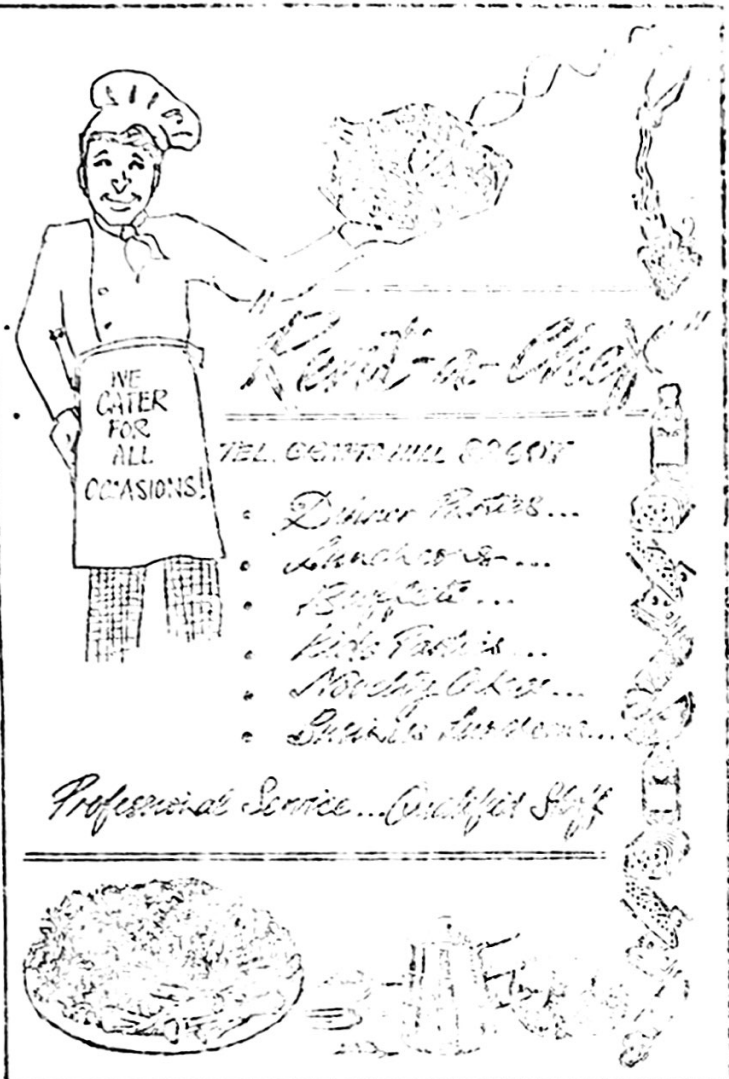 WE
CATER
FOR
ALL
OCCASIONS!
"Rent-a-Chef"
TEL.
• Dinner Parties...
• Luncheons...
• Buffets...
• Kids Parties...
• Novelty Cakes...
• Business Luncheons...
Professional Service...Qualified Staff